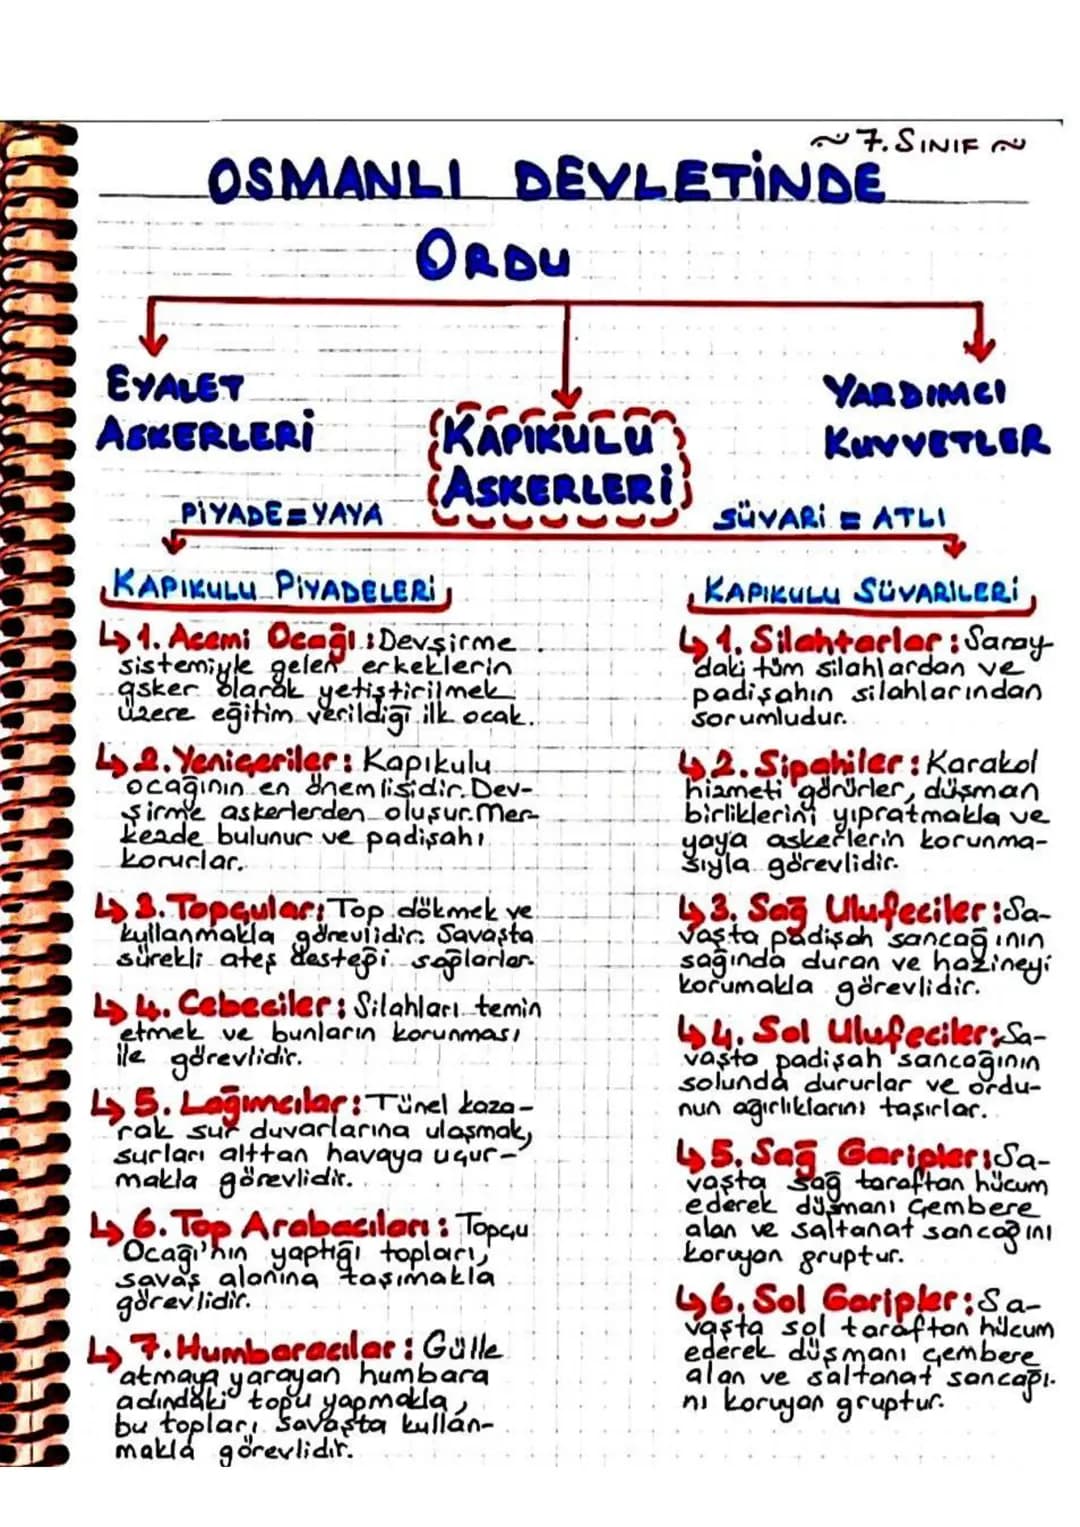 ~7. SINIF~
OSMANLI DEVLETİNDE
ORDU
EYALET
ASKERLERİ
KAPIKULU
ASKERLERİ
YARDIMCI
KUVVETLER
PİYADE=YAYA
SÜVARİ = ATLI
KAPIKULU PİYADELERİ
↳1. Acemi Ocağı: Devşirme
sistemiyle gelen erkeklerin
asker olarak yetiştirilmek
üzere eğitim verildiği ilk ocak.
↳2. Yeniçeriler: Kapıkulu
ocağının en önemlisidir. Dev-
şirme askerlerden oluşur. Mer-
kezde bulunur ve padişahı
korurlar.
↳3. Topçular: Top dökmek ve
kullanmakla görevlidir. Savaşta
sürekli ateş desteği sağlarlar.
↳4. Cebeciler: Silahları temin
etmek ve bunların korunması
ile görevlidir.
↳5. Lağımcılar: Tünel kaza-
rak sur duvarlarına ulaşmak,
surları alttan havaya uçur-
makla görevlidir.
↳6. Top Arabacıları: Topçu
Ocağı'nın yaptığı topları,
savaş alanına taşımakla
görevlidir.
↳7. Humbaracılar: Gülle
atmaya yarayan humbara
adındaki topu yapmakla,
bu topları savaşta kullan-
makla görevlidir.
KAPIKULU SÜVARİLERİ
↳1. Silahtarlar: Saray-
daki tüm silahlardan ve
padişahın silahlarından
sorumludur.
↳2. Sipahiler: Karakol
hizmeti görürler, düşman
birliklerini yıpratmakla ve
yaya askerlerin korunma-
sıyla görevlidir.
↳3. Sağ Ulufeciler: Sa-
vaşta padişah sancağının
sağında duran ve hazineyi
korumakla görevlidir.
↳4. Sol Ulufeciler: Sa-
vaşta padişah sancağının
solunda dururlar ve ordu-
nun ağırlıklarını taşırlar.
↳5. Sağ Garipler: Sa-
vaşta sağ taraftan hücum
ederek düşmanı çembere
alan ve saltanat sancağını
koruyan gruptur.
↳6. Sol Garipler: Sa-
vaşta sol taraftan hücum
ederek düşmanı çembere
alan ve saltanat sancağı-
nı koruyan gruptur.